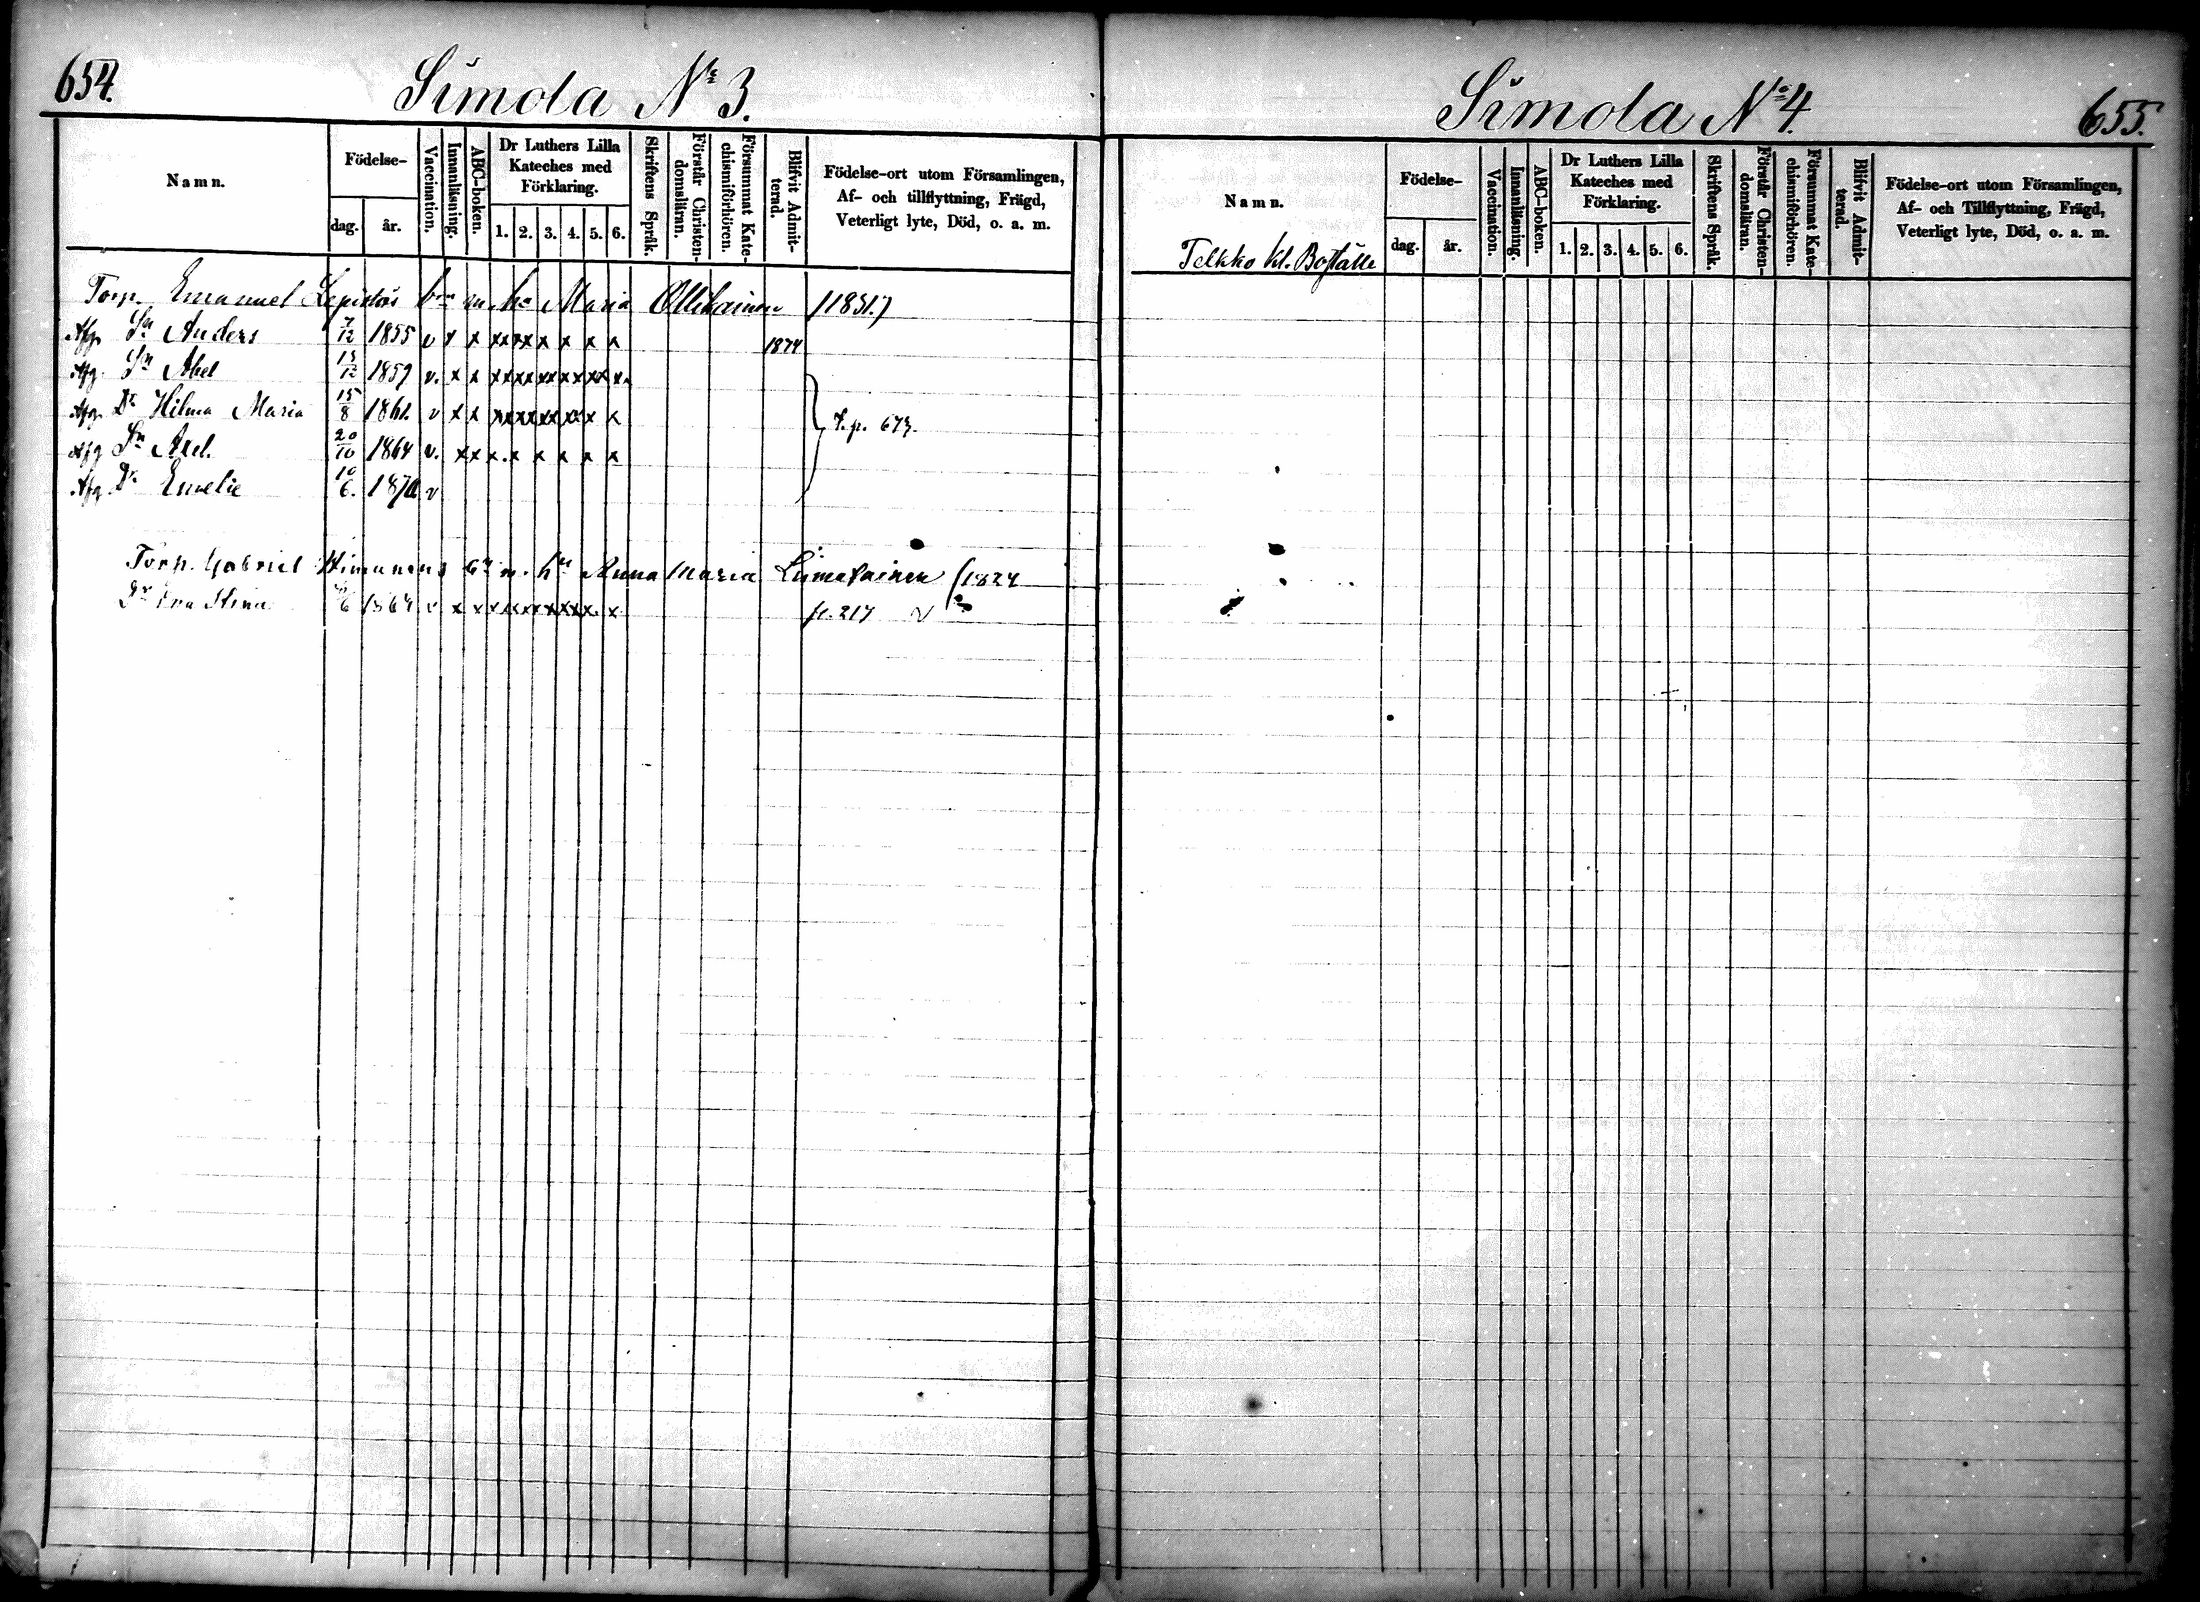 654.
Simola No 3.
Namn.
Födelse-
dag. år.
Vaccination.
Innanläsning.
ABC-boken.
Dr Luthers Lilla
Kateches med
Förklaring.
1. 2. 3. 4. 5. 6.
Skriftens Språk.
Förstår Christen-
domsläran.
Försummat Kate-
chismiförhören.
Blifvit Admit-
terad.
Födelse-ort utom Församlingen,
Af- och tillflyttning, Frägd,
Veterligt lyte, Död, o. a. m.
Torp. Emanuel Lepistös bn m. ha Maria Ollikainen (1831.)
Afg. Sn Anders 7/12 1855 v x x x x x x x x x x 1874
Afg. Sn Abel 13/12 1859 v. x x x x x x x x x x x x x x x.
Afg. Dr Hilma Maria 15/8 1862 v x x x x x x x x x x x x
Afg Sn Axel. 20/10 1864 v. x x x . x x x x x x
T. p. 673.
Afg Dr Emelie 10/6. 1870 v
Torp. Gabriel Himanens bn m. hu Anna Maria Liimatainen (1824
Dr Eva Stina /6 1864 v x x x x x x x x x x x. x p. 217 v
Simola No 4.
655.
Namn.
Telkko kl. Boställe
Födelse-
dag. år.
Vaccination.
Innanläsning.
ABC-boken.
Dr Luthers Lilla
Kateches med
Förklaring.
1. 2. 3. 4. 5. 6.
Skriftens Språk.
Förstår Christen-
domsläran.
Försummat Kate-
chismiförhören.
Blifvit Admit-
terad.
Födelse-ort utom Församlingen,
Af- och Tillflyttning, Frägd,
Veterligt lyte, Död, o. a. m.